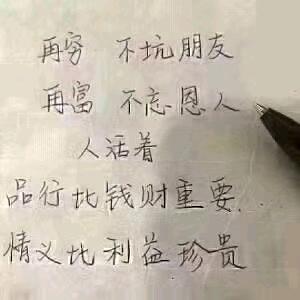 再穷 不坑朋友
再富 不忘恩人
人活着
品行比钱财重要...
情义比利益珍贵